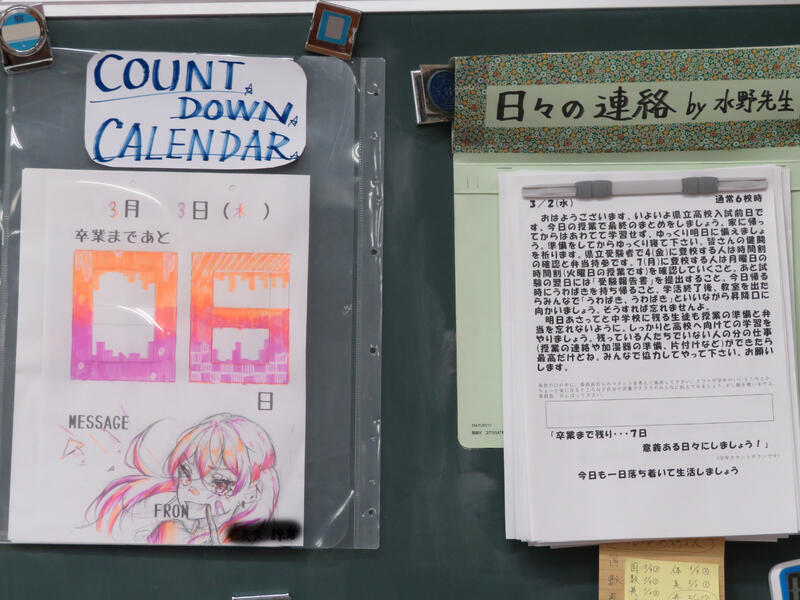 COUNT
DOWN
CALENDAR
3月 3日(木)
卒業まであと
06
日
MESSAGE
FROM
日々の連絡 by 水野先生
3/2(水) 通常6校時
おはようございます。いよいよ県立高校入試前日で
す。今日の授業で最終のまとめをしましょう。家に帰っ
てからはあわてて学習せず、ゆっくり明日に備えましょ
う。準備をしてからゆっくり寝て下さい。皆さんの健闘
を祈ります。県立受験者で4(金)に登校する人は時間割
の確認と弁当持参です。7(月)に登校する人は月曜日の
時間割(火曜日の授業です)を確認していくこと。あと試
験の翌日には「受験報告書」を提出すること。今日帰る
時にうわばきを持ち帰ること。学活終了後、教室を出た
らみんなで「うわばき、うわばき」といいながら昇降口に
向かいましょう。そうすれば忘れませんよ。
明日あさってと中学校に残る生徒も授業の準備と弁
当を忘れないように。しっかりと高校へ向けての学習を
やりましょう。残っている人たちでいない人の分の仕事
(授業の連絡や加湿器の準備、片付けなど)ができたら
最高だけどね。みんなで協力してやって下さい。お願い
します。
「卒業まで残り・・・7日
意義ある日々にしましょう！」
(学年カウントダウンです)
今日も一日落ち着いて生活しましょう
国
数
英
体
美